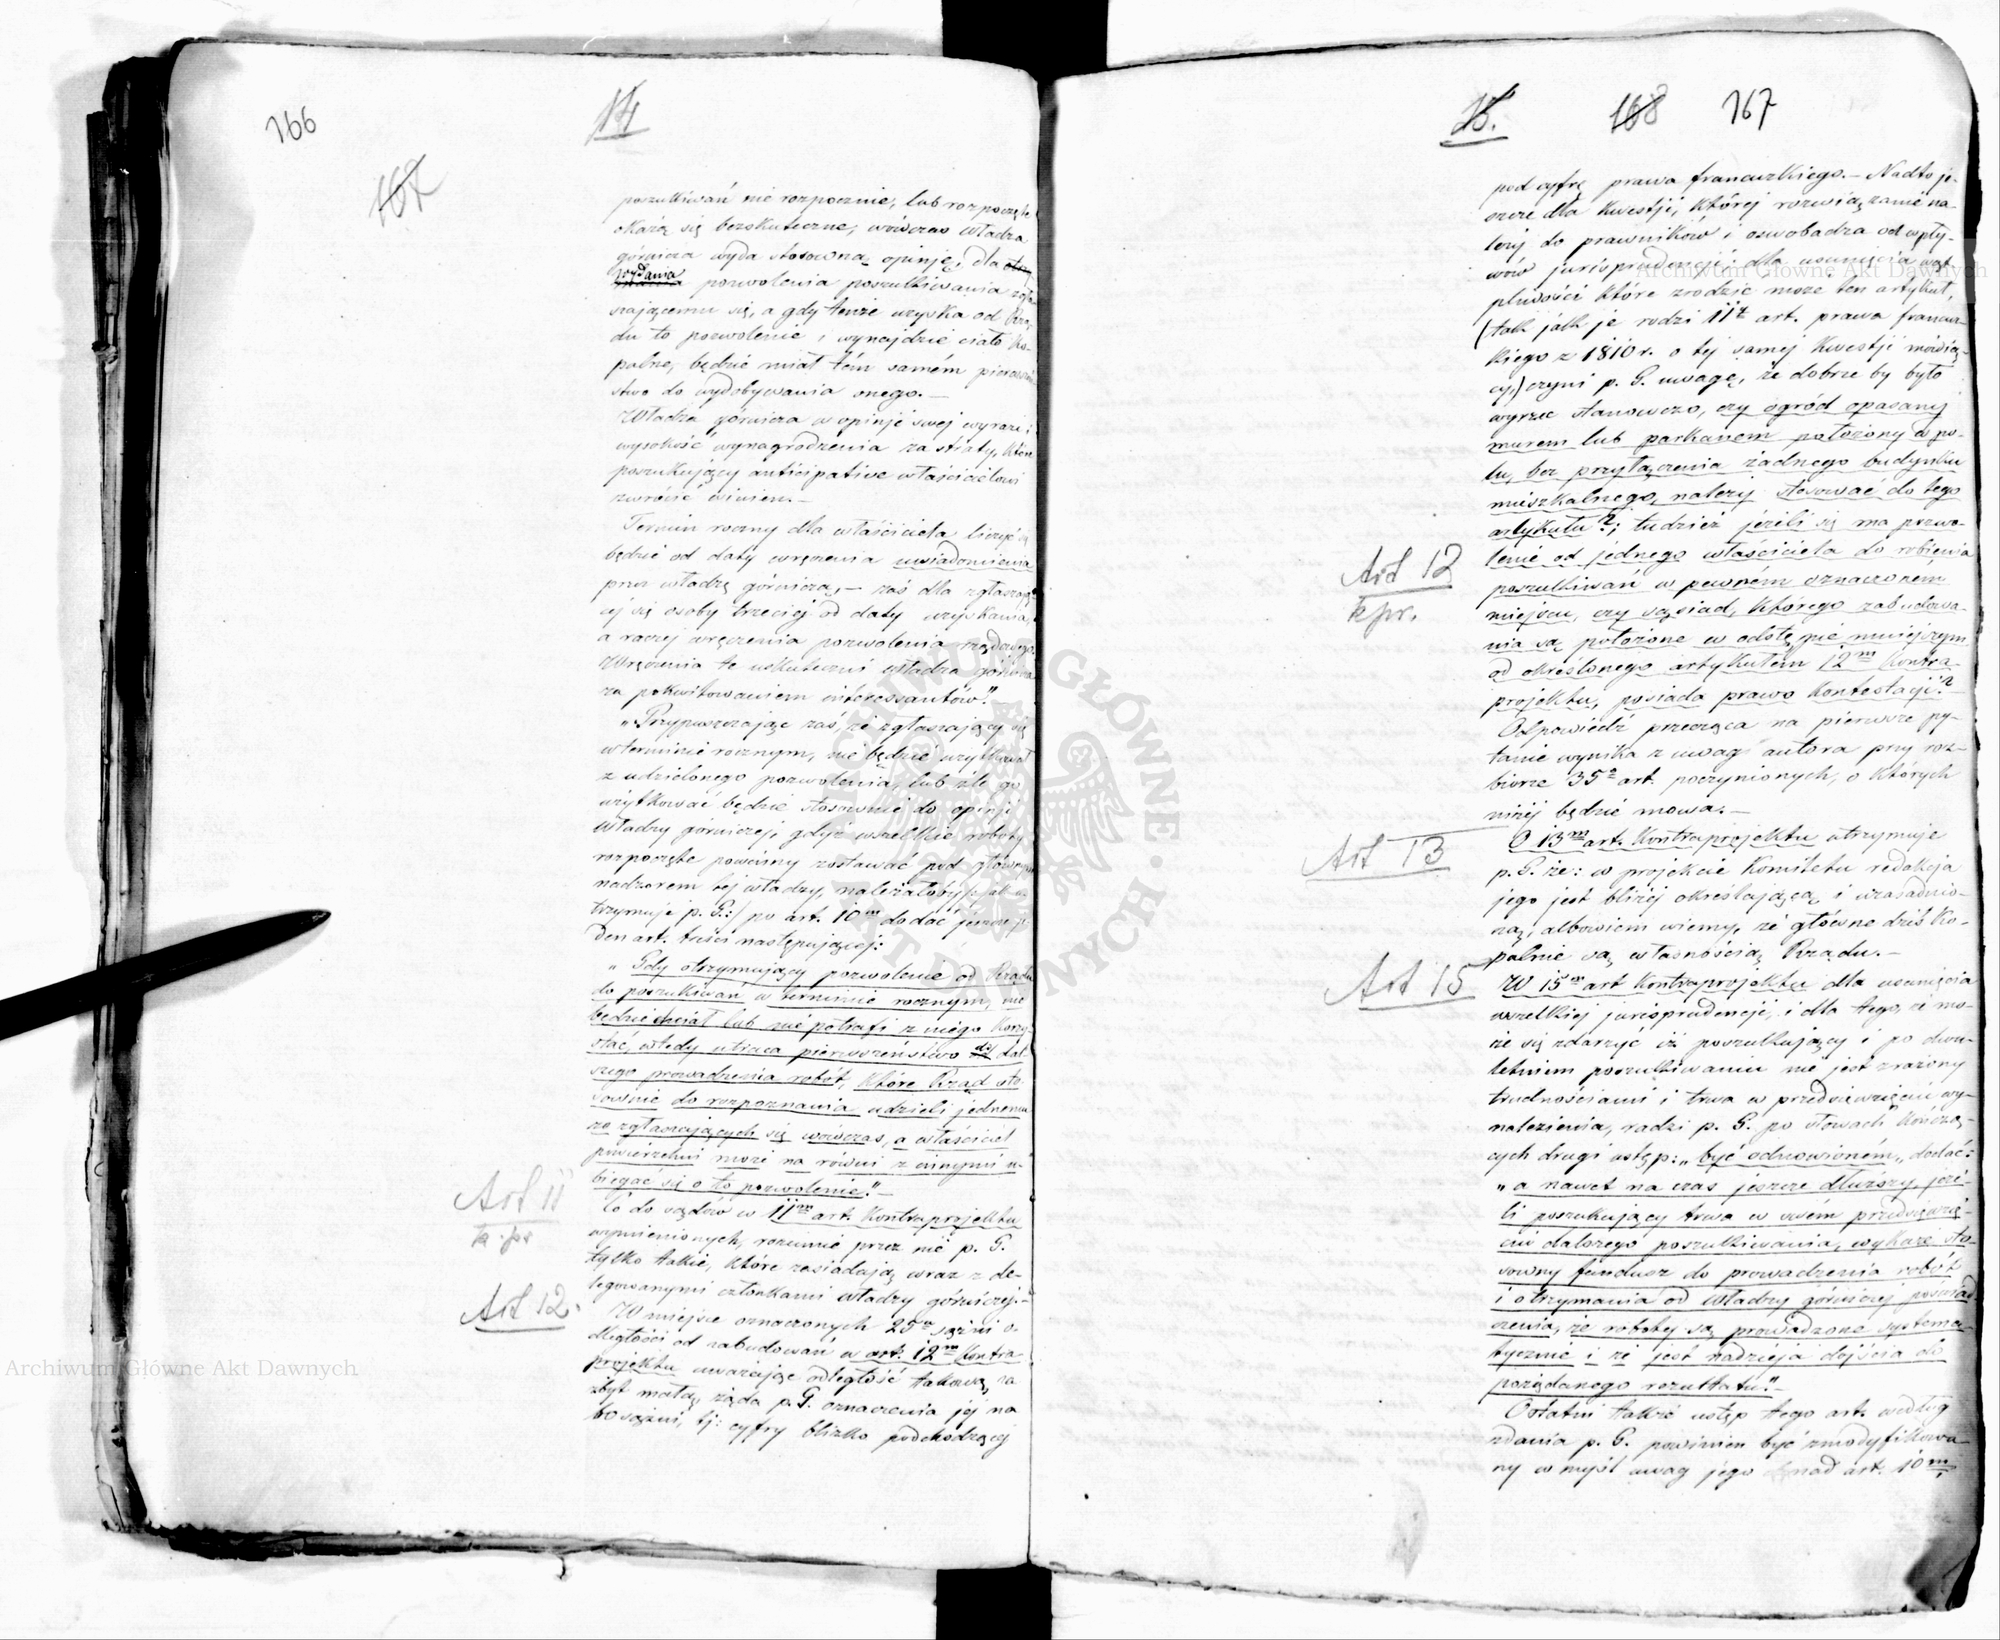 166
14
167
poszukiwań nie rozpocznie, lub rozpoczęte
okażą się bezskuteczne, wówczas władza
górnicza wyda stosowną opinję, dla
wydania pozwolenia poszukiwania zgła-
szającemu się, a gdy tenże uzyska od Rzą-
du to pozwolenie i wynajdzie ciało ko-
palne, będzie miał tém samém pierwszeń-
stwo do wydobywania onego.—
Władza górnicza w opinji swej wyrazi i
wysokość wynagrodzenia za straty, które
poszukujący anticipative właścicielowi
zwrócić winien.—
Termin roczny dla właściciela liczyć się
będzie od daty wręczenia uwiadomienia
przez władzę górniczą,— zaś dla zgłaszają-
céj się osoby trzeciéj od daty uzyskania,
a raczej wręczenia pozwolenia rządowego.
Wręczenia te uskuteczni władza górnicza
za pokwitowaniem interessantów."
„Przypuszczając zaś, że zgłaszający się
w terminie rocznym, nie będzie użytkował
z udzielonego pozwolenia, lub źle go
użytkować będzie stosownie do opinji
władzy górniczej, gdyż wszelkie roboty
rozpoczęte powinny zostawać pod głównym
nadzorem tej władzy, należałoby /: jak u-
trzymuje p. G.:/ po art. 10m dodać jeszcze je-
den art. treści następującéj:
„Gdy otrzymujący pozwolenie od Rządu
do poszukiwań w terminie rocznym, nie
będzie chciał lub nie potrafi z niego korzy-
stać, wtedy utraca pierwszeństwo do dal-
szego prowadzenia robót, które Rząd sto-
sownie do rozpoznania udzieli jednemu
ze zgłaszających się wówczas, a właściciel
powierzchni może na równi z innymi u-
biegać się o to pozwolenie."—
Art 11
k. pr
Co do sądów w 11m art. Kontraprojektu
wymienionych, rozumie przez nie p. G.
tylko takie, które zasiadają wraz z de-
legowanymi członkami władzy górniczej.—
Art 12.
W miejsce oznaczonych 25u sążni o-
dległości od zabudowań w art. 12m Kontra-
projektu uważając odległość takową, za
zbyt małą żąda p. G. oznaczenia jej na
60 sążni, tj: cyfry blizko podchodzącej
15.
168
167
pod cyfrę prawa francuzkiego.— Nadto je-
szcze dla kwestji, której rozwiązanie na-
leży do prawników i oswobadza od wpły-
wów jurisprudencji; dla usunięcia wąt-
pliwości które zrodzić może ten artykuł,
(tak jak je rodzi 11t art. prawa francuz-
kiego z 1810 r. o tej samej kwestji mówią-
cy,) czyni p. G. uwagę, że dobrze by było
wyrzec stanowczo, czy ogród opasany
murem lub parkanem położony w po-
lu, bez przyłączenia żadnego budynku
mieszkalnego, należy stosować do tego
artykułu?; tudzież jeżeli się ma pozwo-
Art 12
k pr.
lenie od jednego właściciela do robienia
poszukiwań w pewném oznaczoném
miejscu, czy sąsiad, którego zabudowa-
nia są położone w odstępie mniejszym
od określonego artykułem 12m Kontra-
projektu, posiada prawo Kontestacji?
Odpowiedź przecząca na pierwsze py-
tanie wynika z uwag autora przy roz-
biorze 35o art. poczynionych, o których
niżéj będzie mowa.—
Art 13
O 13m art. Kontraprojektu utrzymuje
p. G. że: w projekcie Komitetu redakcja
jego jest bliżéj określającą i uzasadnio-
ną, albowiem wiemy, że główne dziś ko-
palnie są własnością Rządu.—
Art 15
W 15m art Kontraprojektu dla usunięcia
wszelkiéj jurisprudencji, i dla tego, że mo-
że się zdarzyć iż poszukujący i po dwu-
letniem poszukiwaniu nie jest zrażony
trudnościami i trwa w przedsięwzięciu wy-
nalezienia, radzi p. G. po słowach kończą-
cych drugi ustęp: „być odnowioném„ dodać:
„a nawet na czas jeszcze dłuższy, jeże-
li poszukujący trwa w swém przedsięwzię-
ciu dalszego poszukiwania, wykaże sto-
sowny fundusz do prowadzenia robót
i otrzymania od władzy górniczej poświad-
czenia, że roboty są prowadzone systema-
tycznie i że jest nadzieja dojścia do
pożądanego rezultatu."—
Ostatni także ustęp tego art. według
zdania p. G. powinien być zmodyfikowa-
ny w myśl uwag jego nad art. 10m,
Archiwum Główne Akt Dawnych
Archiwum Główne Akt Dawnych